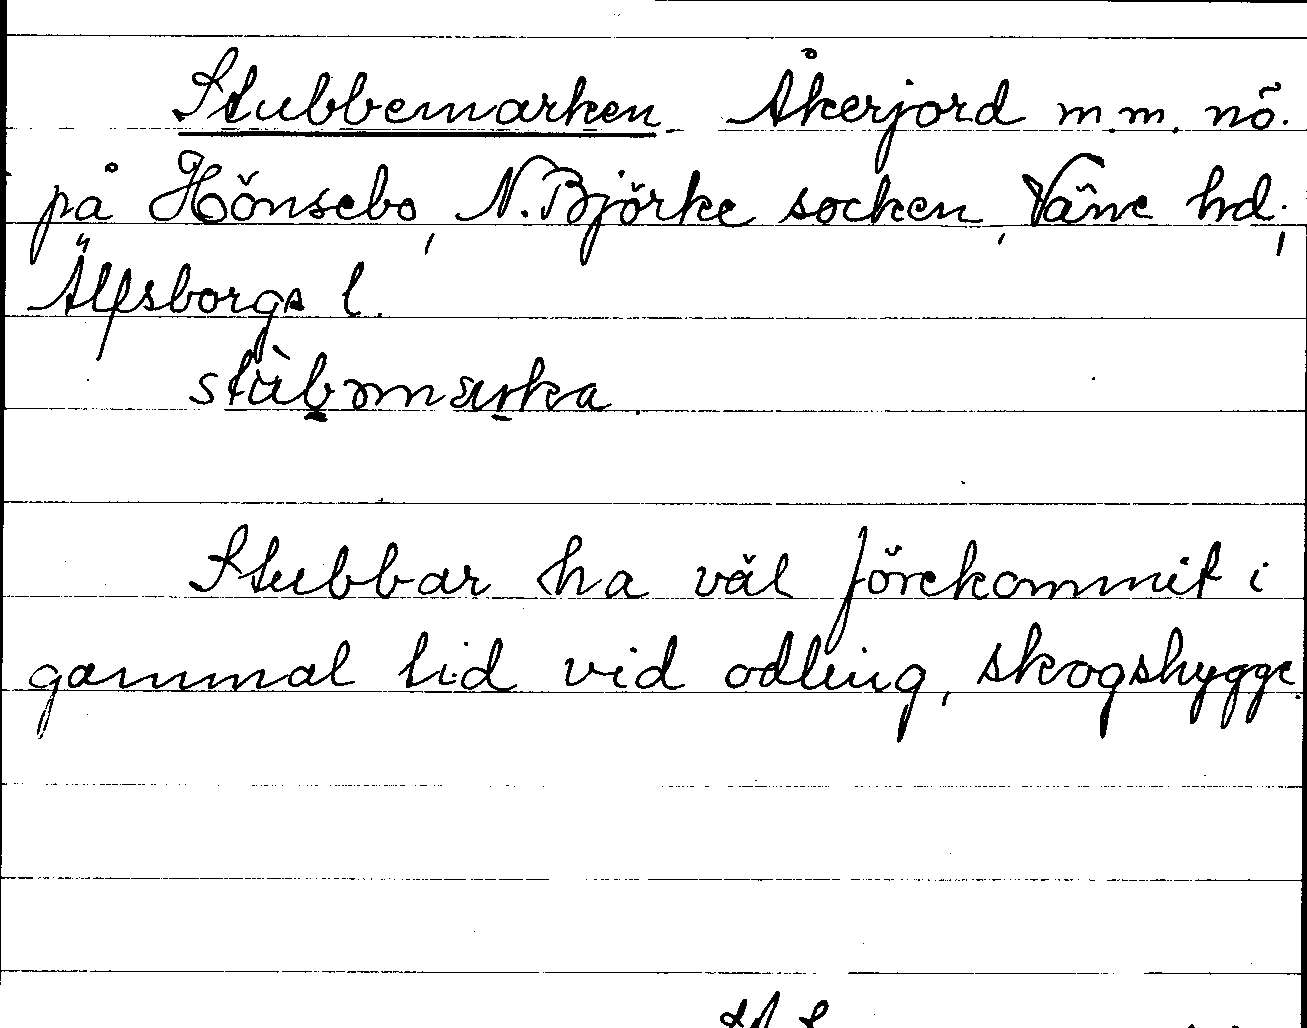 Stubbemarken. Åkerjord m.m. nö.
på Hönsebo, N. Björke socken, Väne hd.,
Älfsborgs l.
stùbəmarka.
Stubbar ha väl förekommit i
gammal tid vid odling, skogshygge.